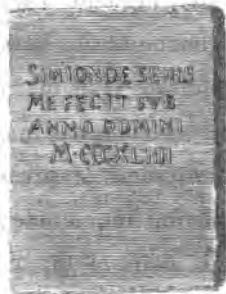 SIMION DE SENIS
ME FECIT SVB
ANNO DOMINI
M·CCCXLIIII